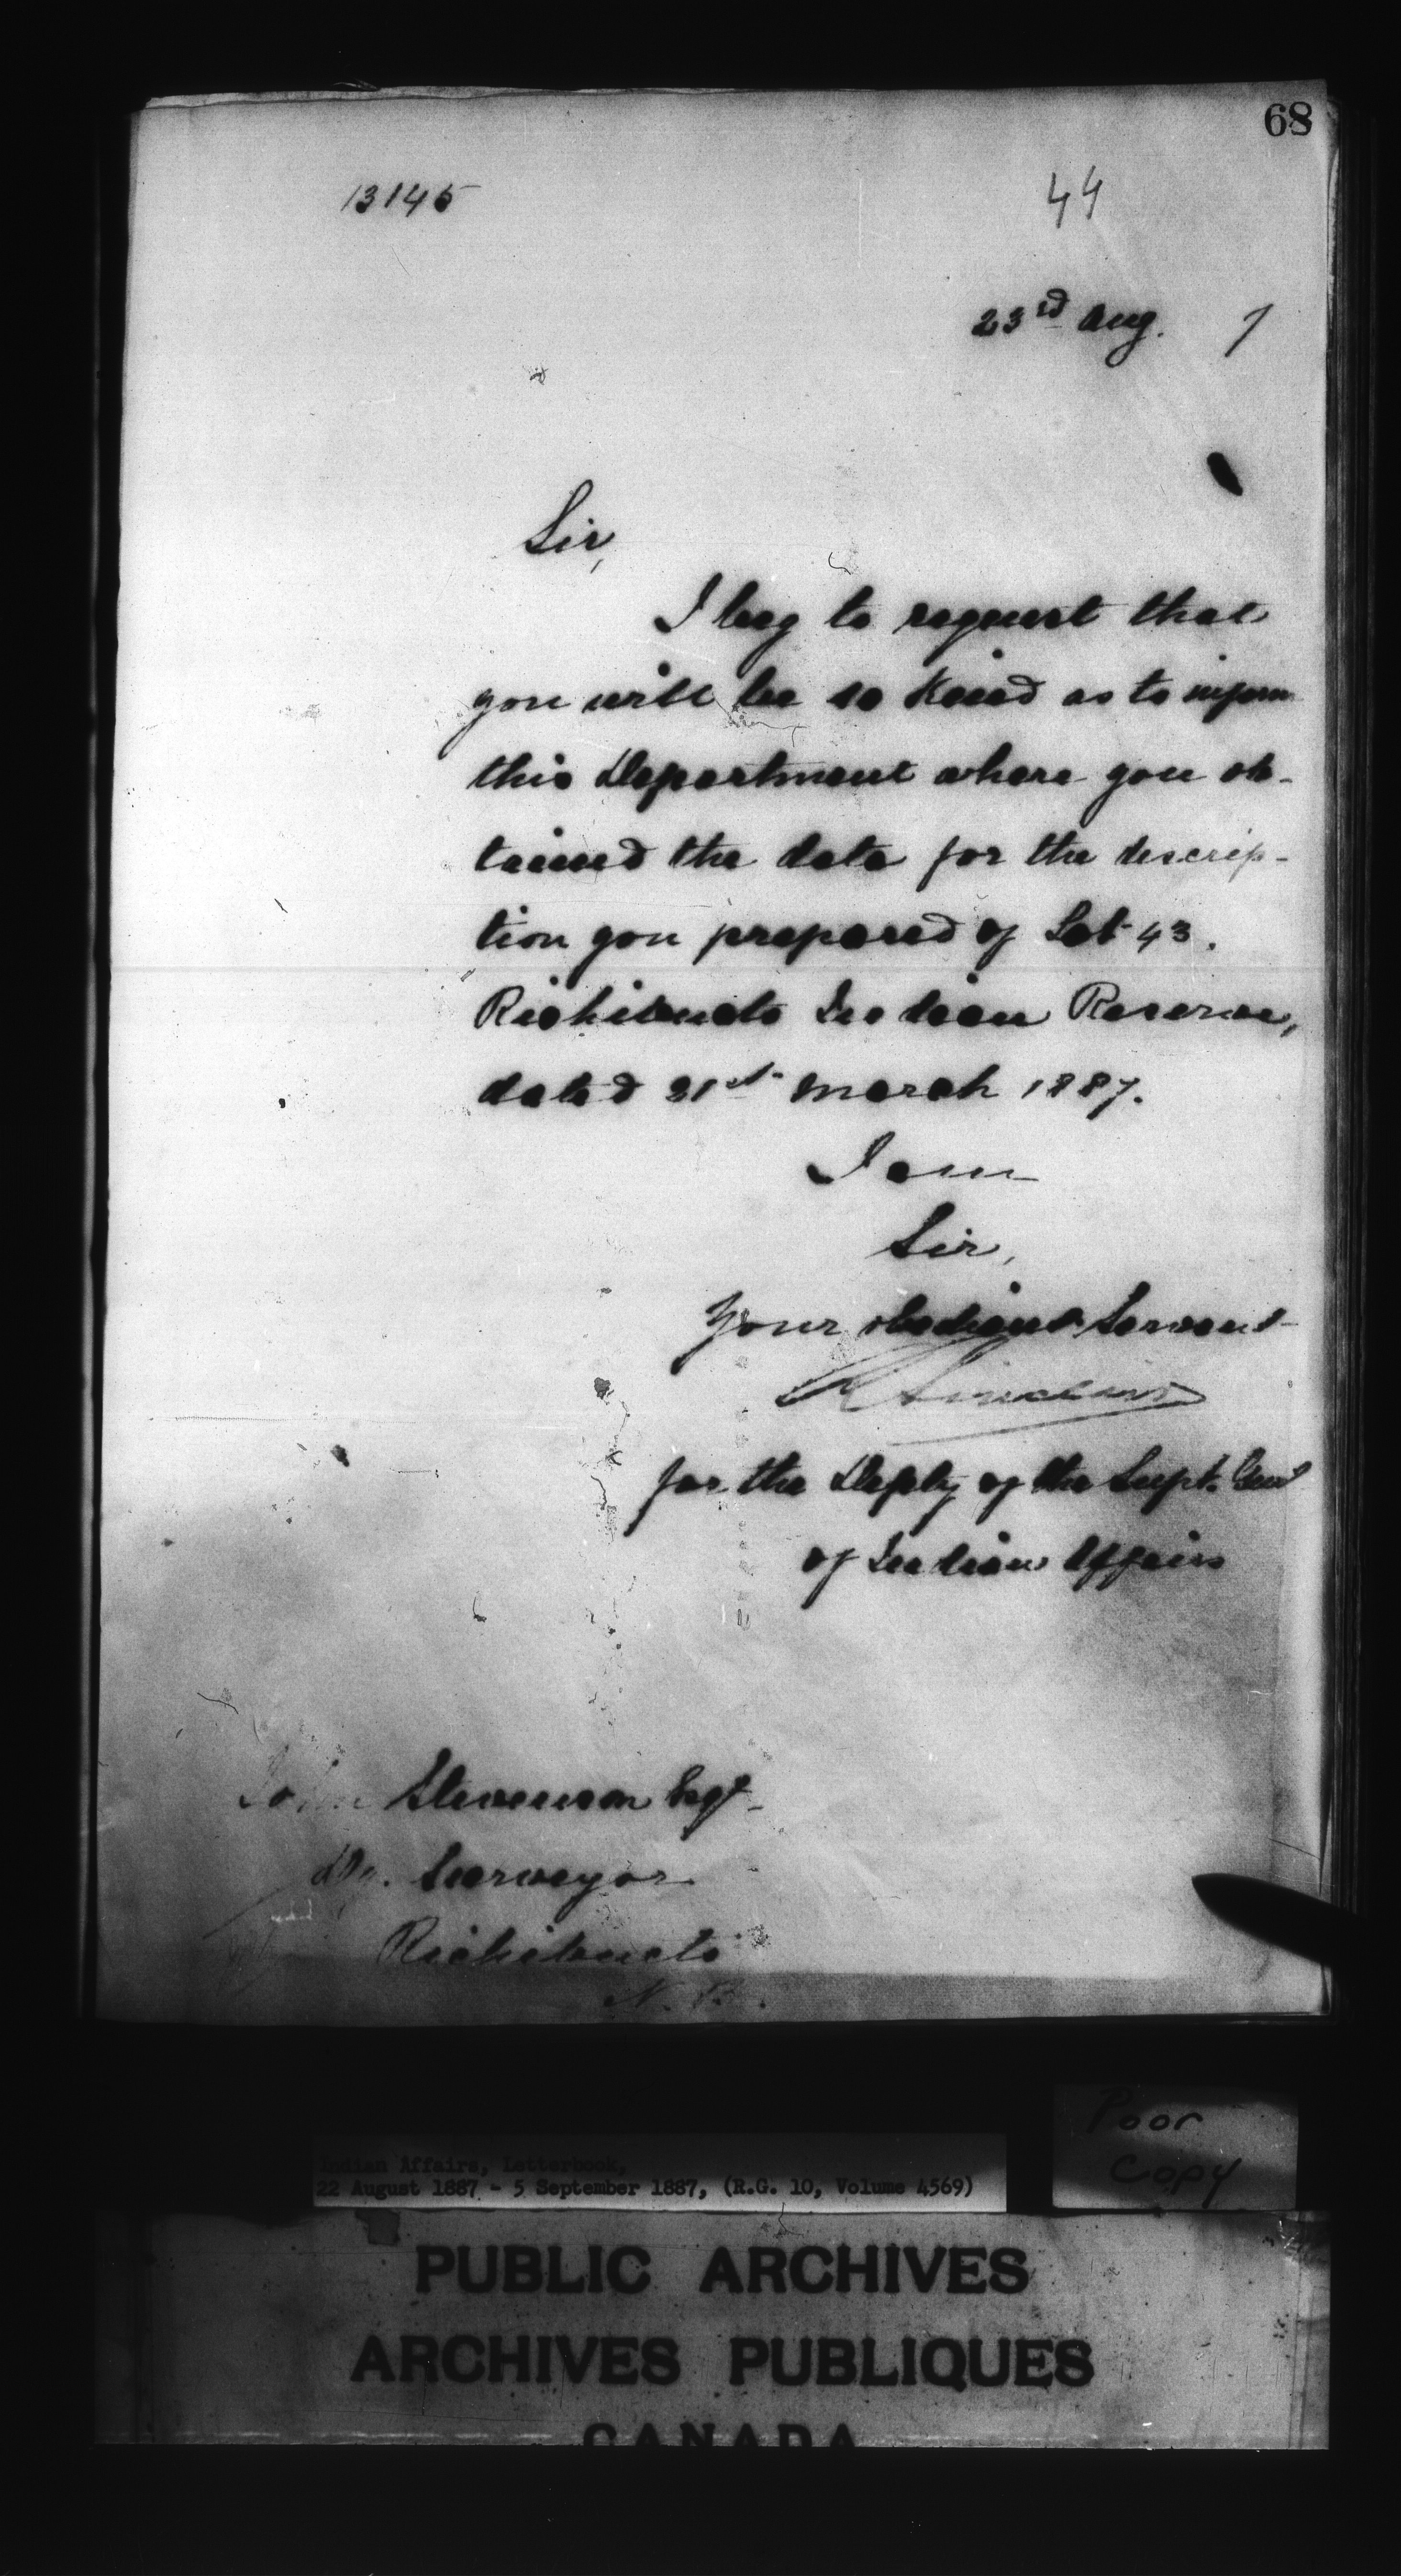 68
13145
44
23rd Aug. 7
Sir,
I beg to request that
you will be so kind as to inform
this Department where you ob-
tained the data for the descrip-
tion you prepared of Lot 43.
Richibucto Indian Reserve,
dated 21st March 1887.
I am
Sir,
Your obedient Servant
R Sinclair
for the Depty of the Supt. Genl
of Indian Affairs
John Stevenson Esqr
Dy. Surveyor
Richibucto
N.B.
Poor
Copy
Indian Affairs, Letterbook,
22 August 1887 - 5 September 1887, (R.G. 10, Volume 4569)
PUBLIC ARCHIVES
ARCHIVES PUBLIQUES
CANADA